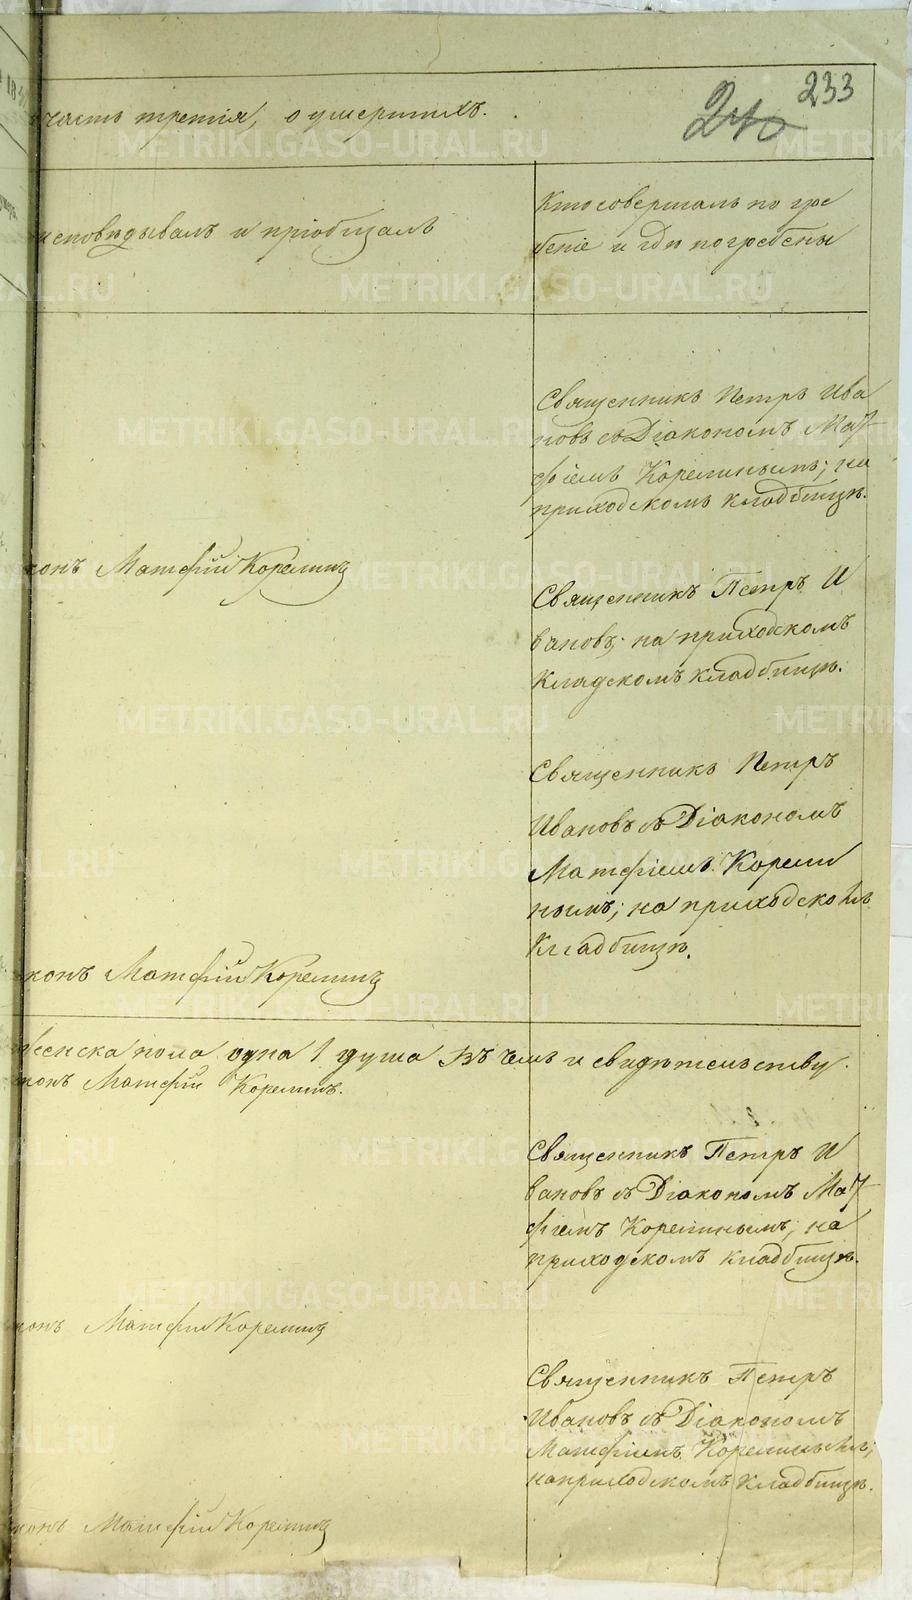 233
240
часть третія, о умершихъ.
исповѣдывалъ и пріобщалъ
Кто совершалъ погре
беніе и гдѣ погребены
Священникъ Петръ Ива
новъ съ Діакономъ Мат
фіемъ Корелинымъ; на
приходскомъ кладбищѣ.
конъ Матфій Корелинъ
Священникъ Петръ И
вановъ; на приходскомъ
Кладскомъ кладбищѣ.
Священникъ Петръ
Ивановъ съ Діакономъ
Матфіемъ Корели
нымъ; на приходскомъ
Кладбищѣ.
конъ Матфій Корелинъ
женска пола одна 1 душа въ чемъ и свидѣтельству.
конъ Матфій Корелинъ.
Священникъ Петръ И
вановъ съ Діакономъ Мат
фіемъ Корелинымъ; на
приходскомъ кладбищѣ.
конъ Матфій Корелинъ
Священникъ Петръ
Ивановъ съ Діакономъ
Матфіемъ Корелинымъ;
на приходскомъ кладбищѣ.
конъ Матфій Корелинъ
METRIKI.GASO-URAL.RU